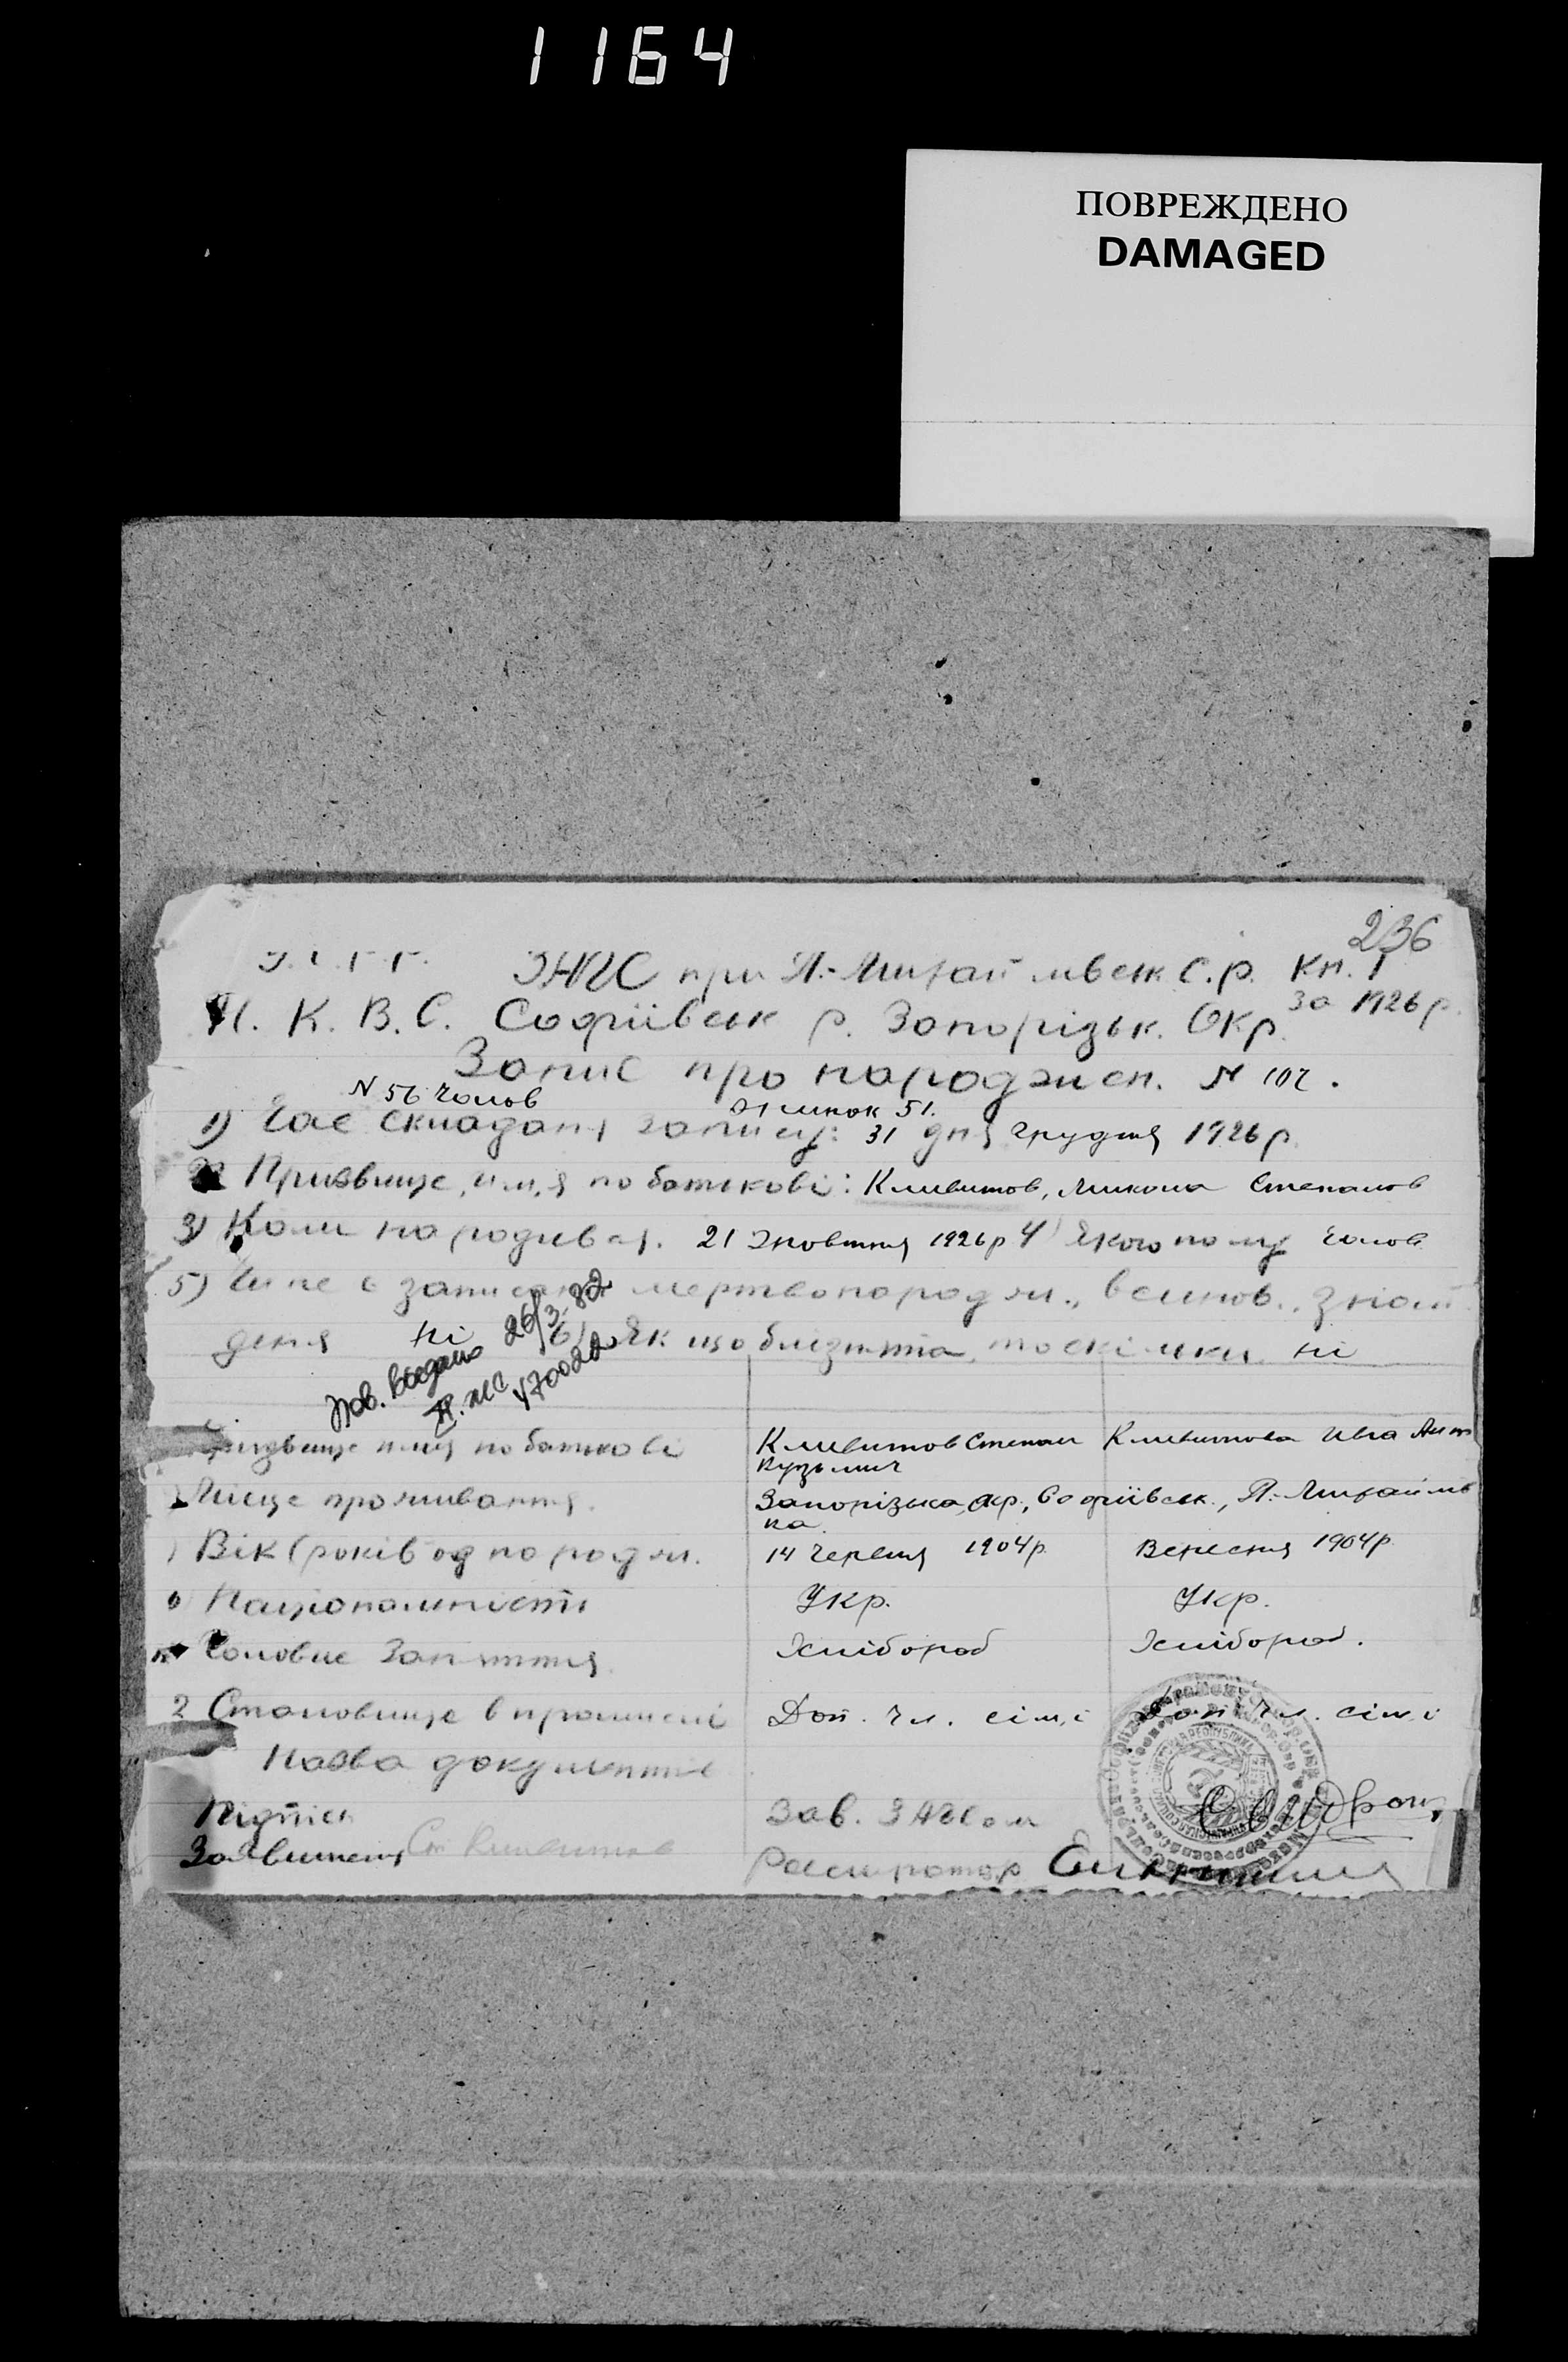 1164
ПОВРЕЖДЕНО
DAMAGED
236
ЗАГС при П.-Михайлівськ. С.р. Кн. 1
Н. К. В. С. Софіївськ р. Запорізьк. Окр. за 1926 р.
Запис про народжен. N 107.
N 56 чолов жинок 51.
1) Час складаня запису: 31 дня грудня 1926 р.
Призвище, им,я по батькові: Кливитов, Микола Степанов
3) Коли народився. 21 жовтня 1926 р 4) Якого полу чолов
5) Чи не є записан мертвонародж., випов., знай
деня ні 6) Як що близнята, то скільки ні
Пов. выдано 26/3-82
470022
Призвище имя по батькові Кливитов Степан Кливитова Ивга Ант
Кузьмич
Місце проживання. Запорізька окр., Софіївськ., П.-Михайлів
ка.
Вік (років од породж. 14 червня 1904 р. Вересня 1904 р.
Національність Укр. Укр.
Головне Заняття Хлібороб Хлібороб.
2 Становище в промислі Доп. чл. сім,і Доп. чл. сім,і
Назва документів
Підпись Зав. ЗАГСом
Заявителя Ст Кливитов Реєстратор